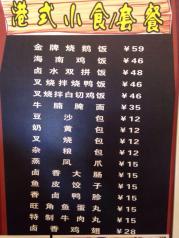 港式小食/套餐
金牌烧鹅饭 ¥59
海南鸡饭 ¥46
卤水双拼饭 ¥48
叉烧拼烧鸭饭 ¥46
叉烧拼白切鸡饭 ¥46
牛腩腌面 ¥35
豆沙包 ¥12
奶黄包 ¥12
叉烧包 ¥12
杂粮包 ¥12
蒸凤爪 ¥15
卤香大肠 ¥15
鱼皮饺子 ¥15
卤香鸭胗 ¥15
旺角鱼蛋 ¥15
特制牛肉丸 ¥15
卤香鸡翅 ¥28